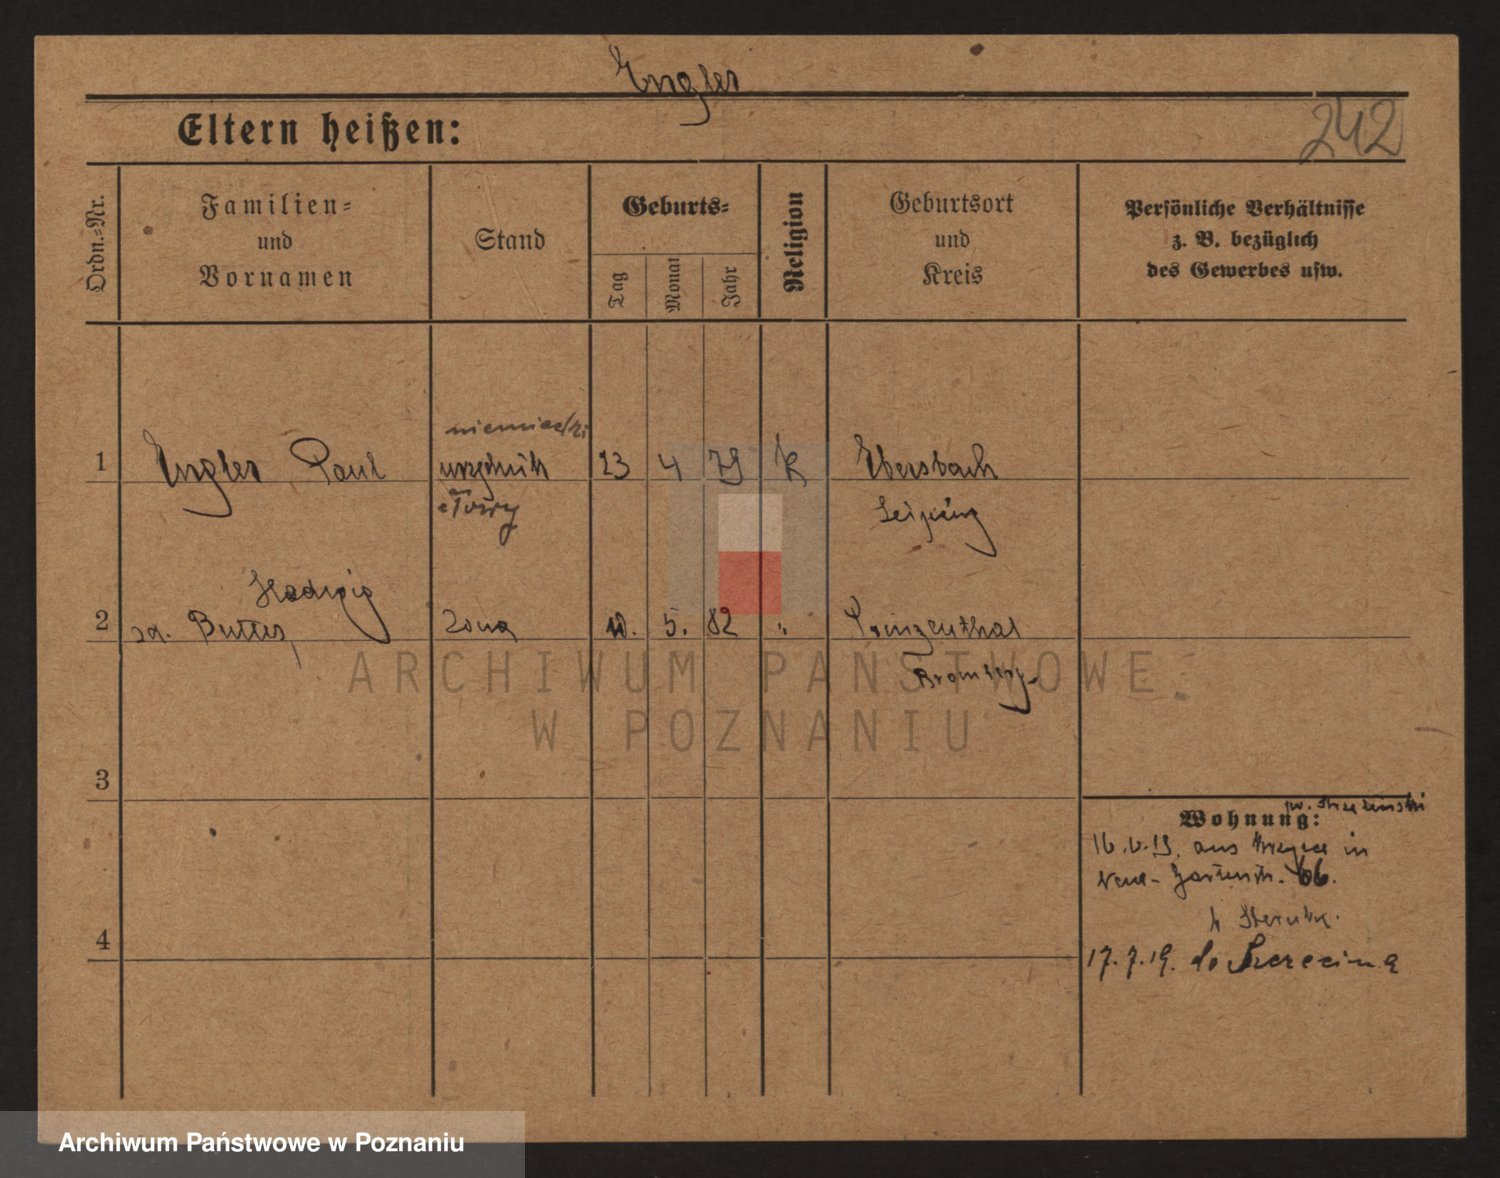 Engler
Eltern heißen:
242
Ordn.-Nr.
Familien-
und
Vornamen
Stand
Geburts-
Tag
Monat
Jahr
Religion
Geburtsort
und
Kreis
Persönliche Verhältnisse
z. B. bezüglich
des Gewerbes usw.
niemiecki
1 Engler Paul urzędnik 23 4 79 K Ebersbach
Leipzig
Hedwig
2 żona 10. 5. 82 " Prinzenthal
Bromberg
ARCHIWUM PAŃSTWOWE
W POZNANIU
3
Wohnung:
16.V.19. aus in
66.
4
17.7.19. do Szczecina
Archiwum Państwowe w Poznaniu